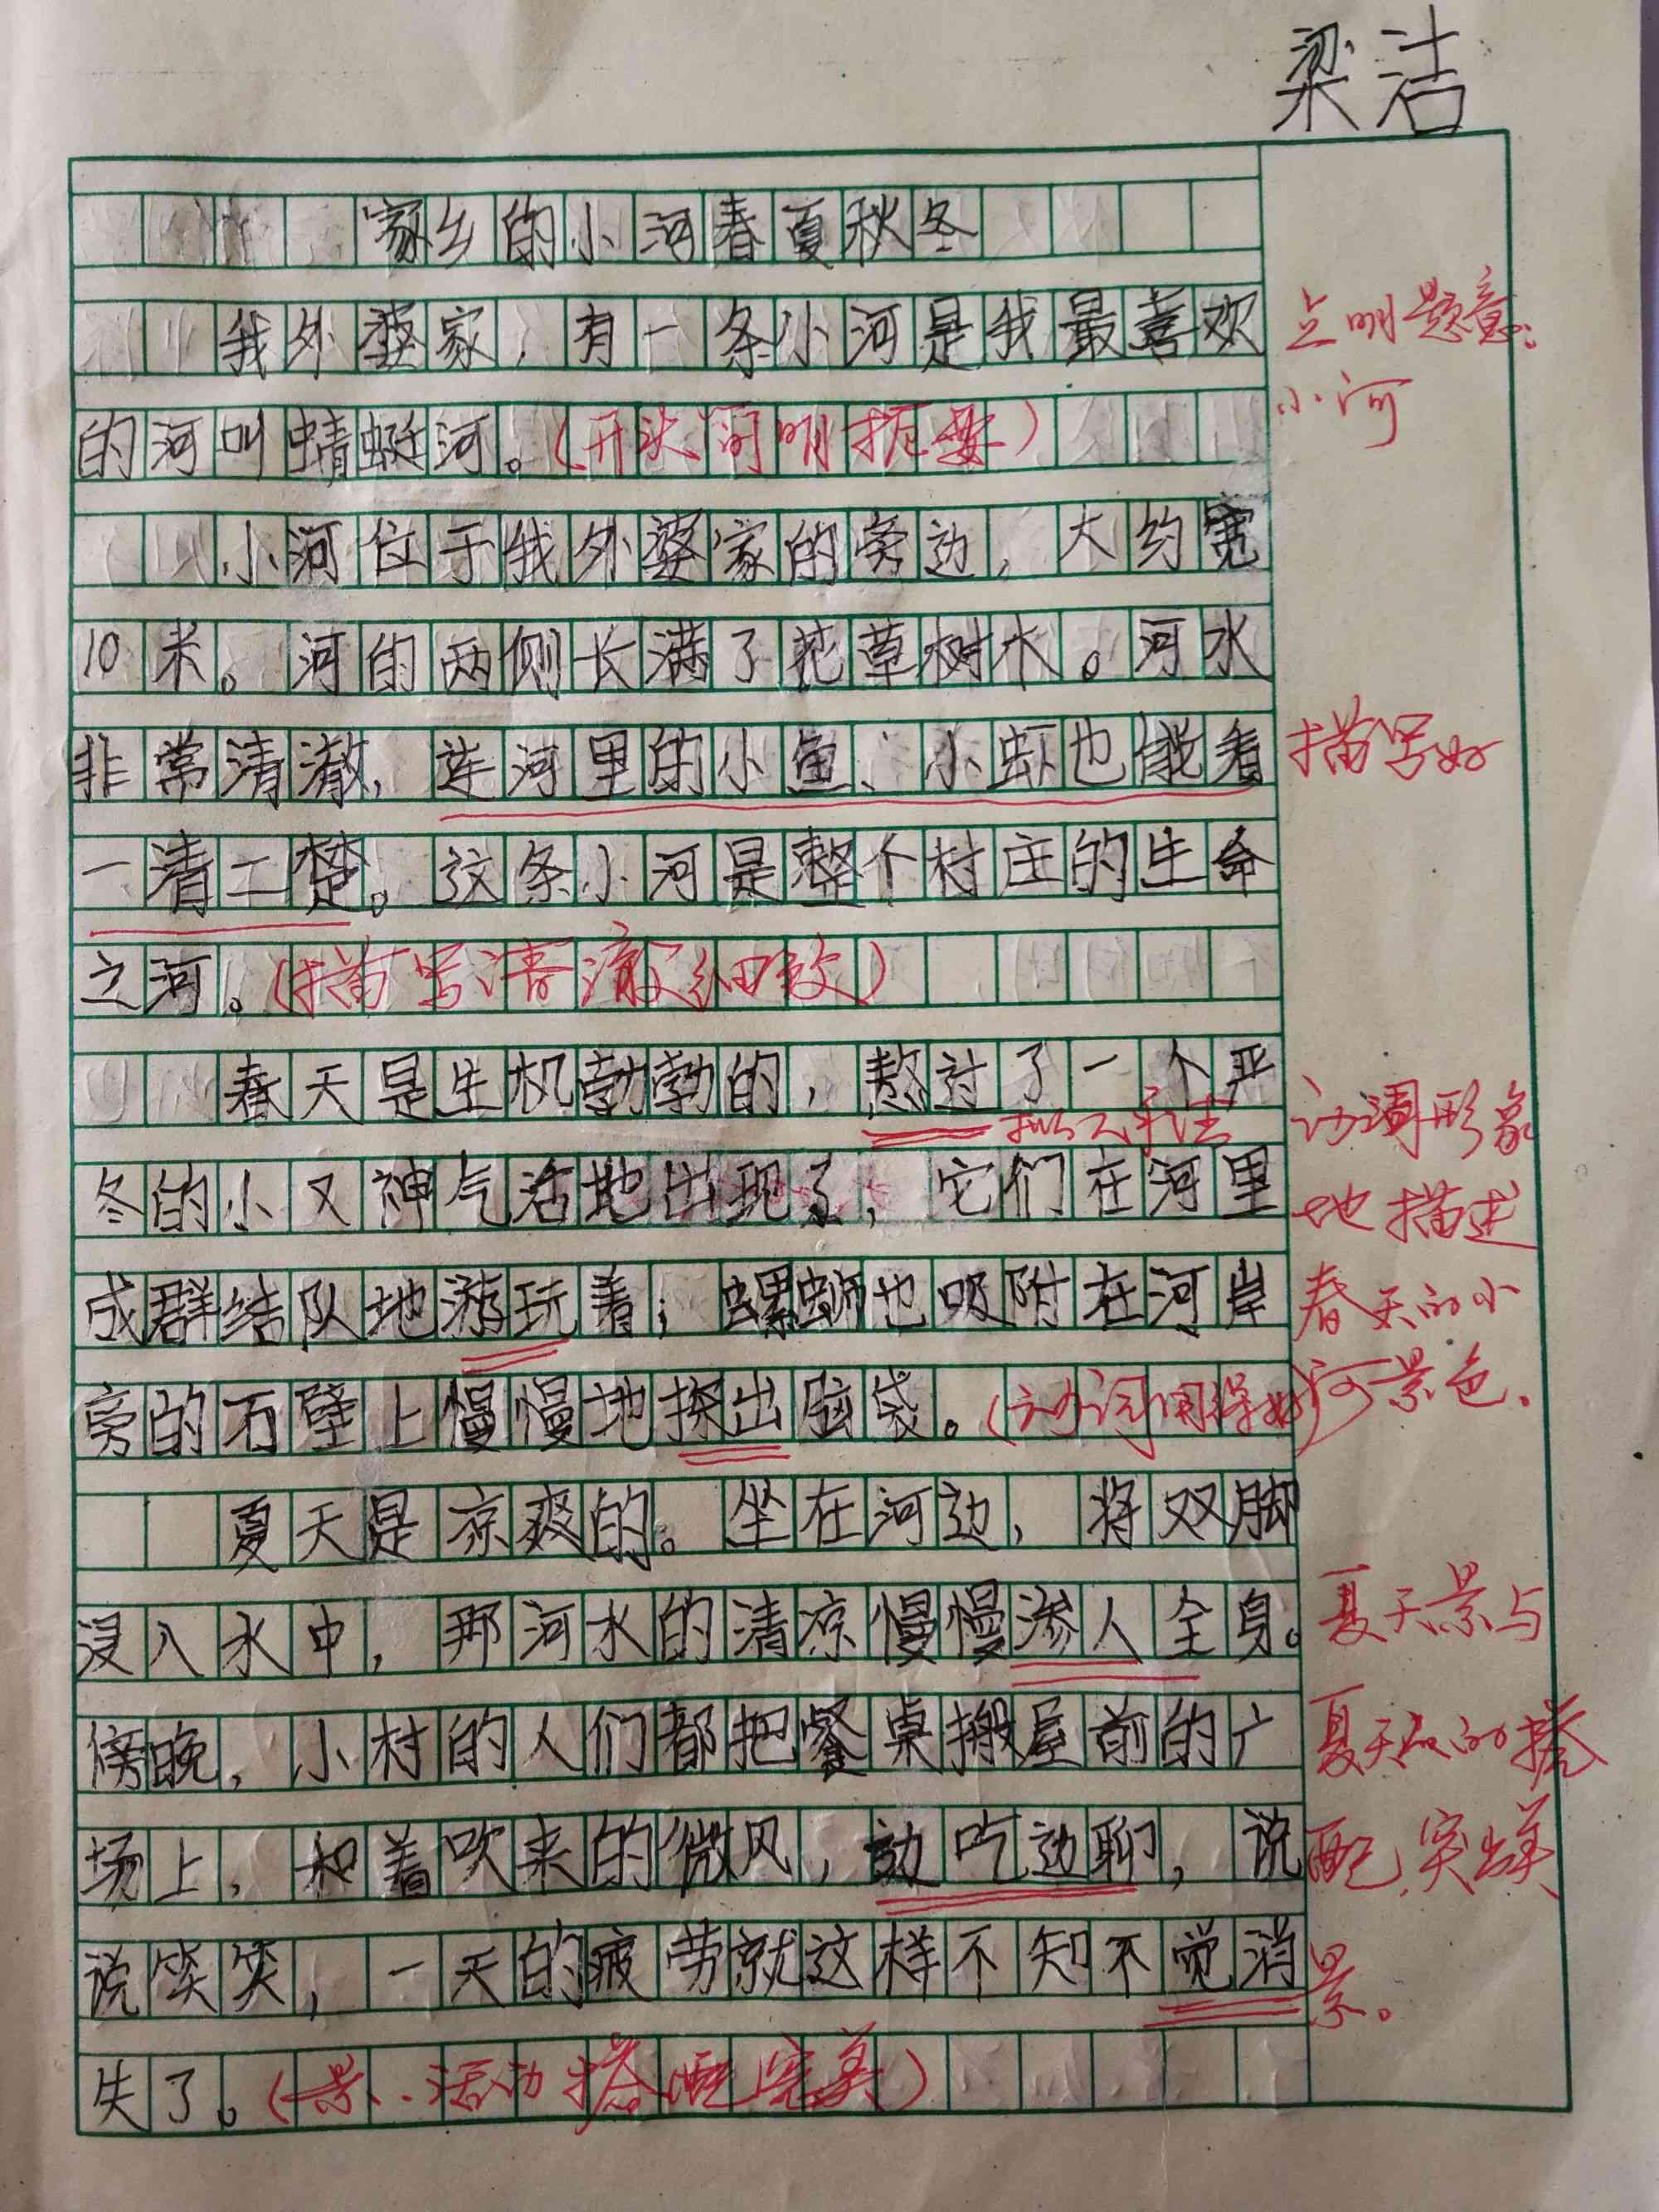 梁洁
家乡的小河春夏秋冬
我外婆家，有一条小河是我最喜欢
点明题意：
的河叫蜻蜓河。(开头简明扼要)
小河
小河位于我外婆家的旁边，大约宽
10米。河的两侧长满了花草树木。河水
非常清澈，连河里的小鱼、小虾也能看
描写好
一清二楚。这条小河是整个村庄的生命
之河。(描写清澈细致)
春天是生机勃勃的，熬过了一个严
拟人手法
动词形象
冬的小又神气活地出现了，它们在河里
地描述
成群结队地游玩着；螺蛳也吸附在河岸
春天的小
旁的石壁上慢慢地探出脑袋。(动词用得好)
河景色.
夏天是凉爽的。坐在河边，将双脚
浸入水中，那河水的清凉慢慢渗人全身。
夏天景与
傍晚，小村的人们都把餐桌搬屋前的广
夏天人的搭
场上，和着吹来的微风，边吃边聊，说
配,突出美
说笑笑，一天的疲劳就这样不知不觉消
景。
失了。(景..活动搭配完美)